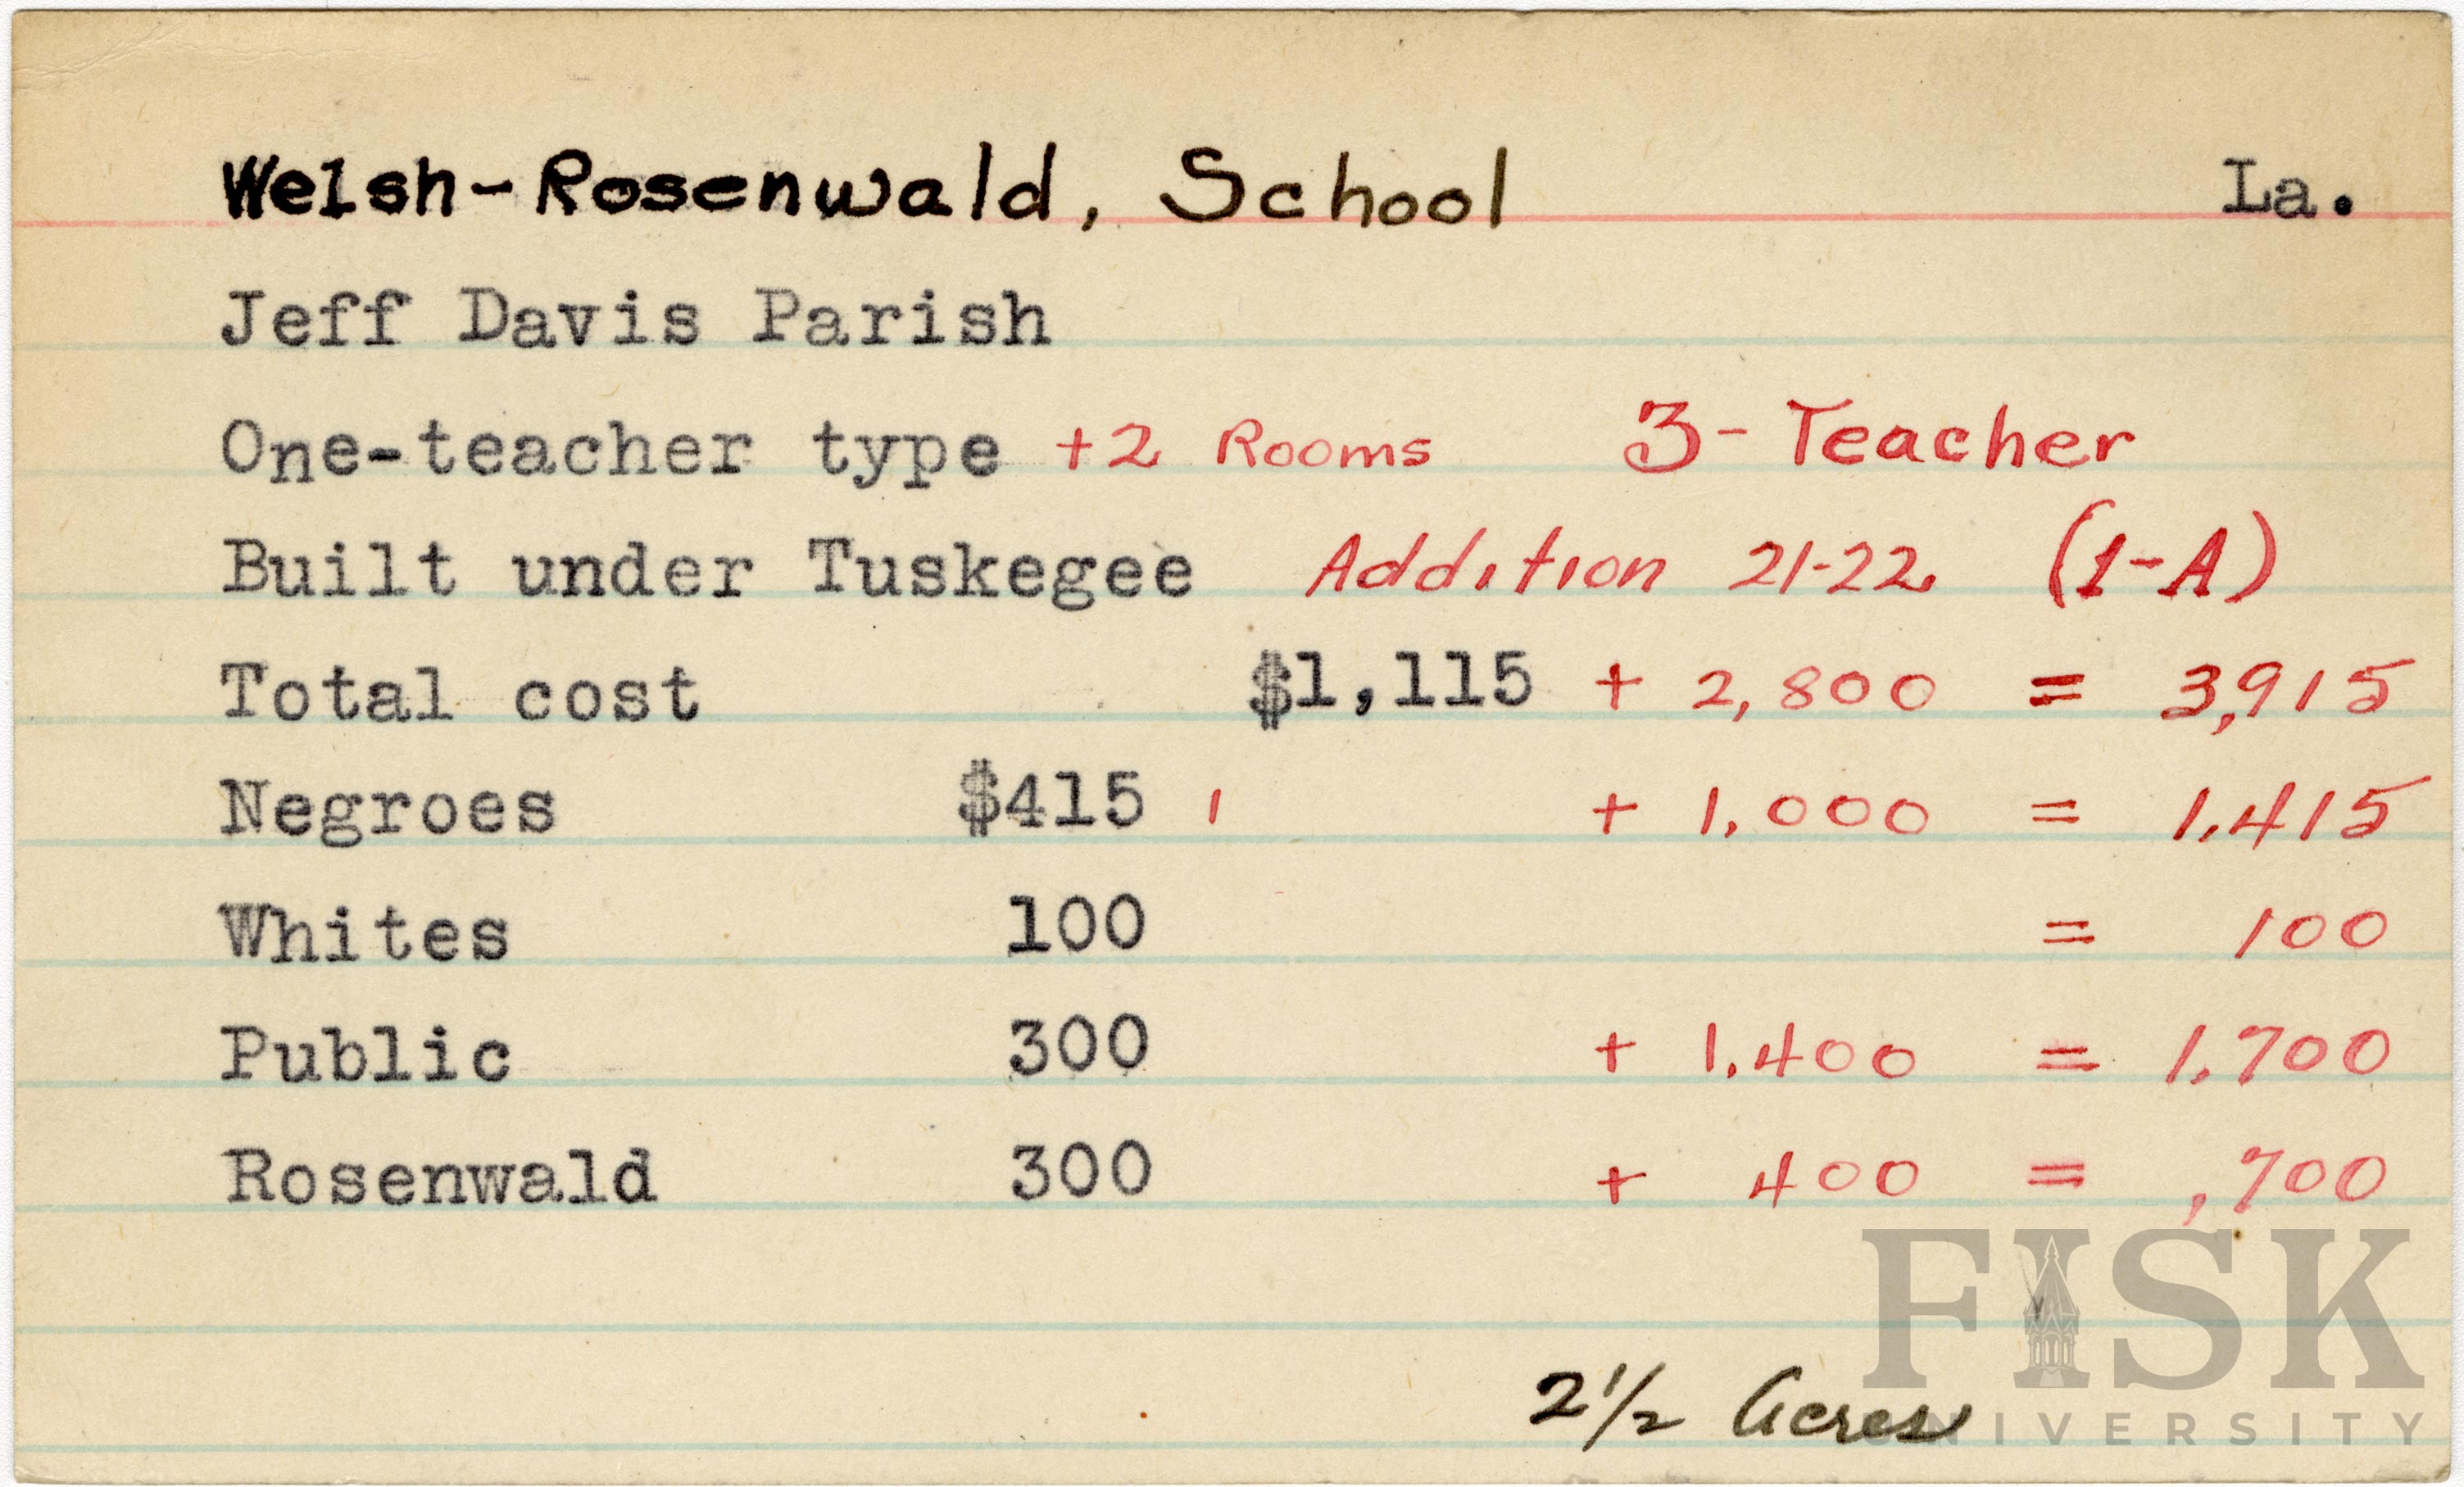 Welsh-Rosenwald, School La.
Jeff Davis Parish
One-teacher type +2 Rooms 3-Teacher
Built under Tuskegee Addition 21-22 (1-A)
Total cost $1,115 + 2,800 = 3,915
Negroes $415 + 1,000 = 1,415
Whites 100 = 100
Public 300 + 1,400 = 1,700
Rosenwald 300 + 400 = ,700
2 1/2 Acres
FISK
UNIVERSITY